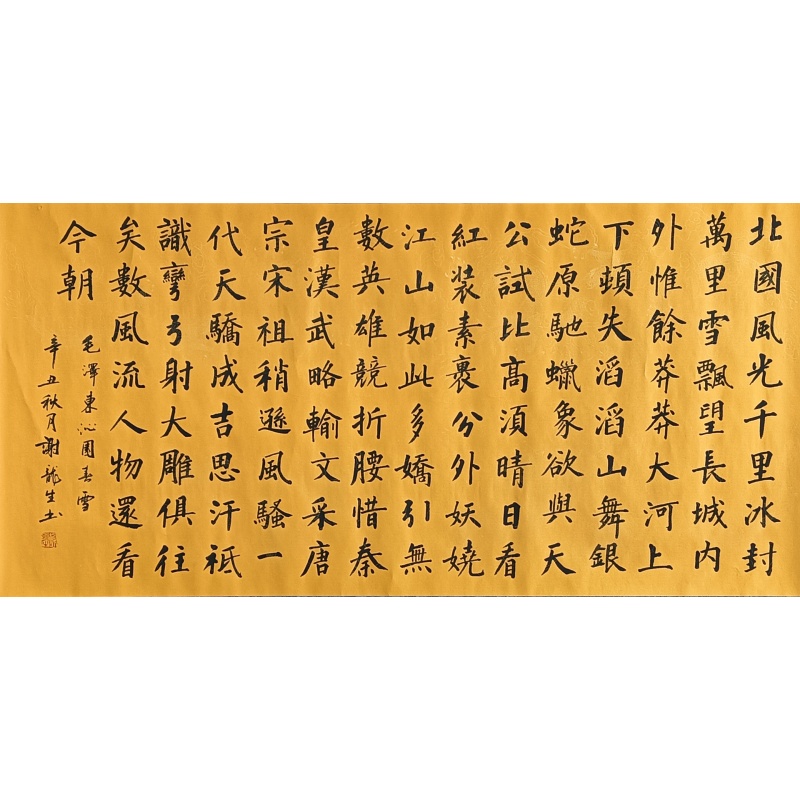 北國風光千里冰封
萬里雪飄望長城内
外惟餘莽莽大河上
下頓失滔滔山舞銀
蛇原馳蠟象欲與天
公試比高須晴日看
紅裝素裹分外妖嬈
江山如此多嬌引無
數英雄競折腰惜秦
皇漢武略輸文采唐
宗宋祖稍遜風騷一
代天驕成吉思汗祗
識彎弓射大雕俱往
矣數風流人物還看
今朝
毛澤東沁園春雪
辛丑秋月謝龍生书